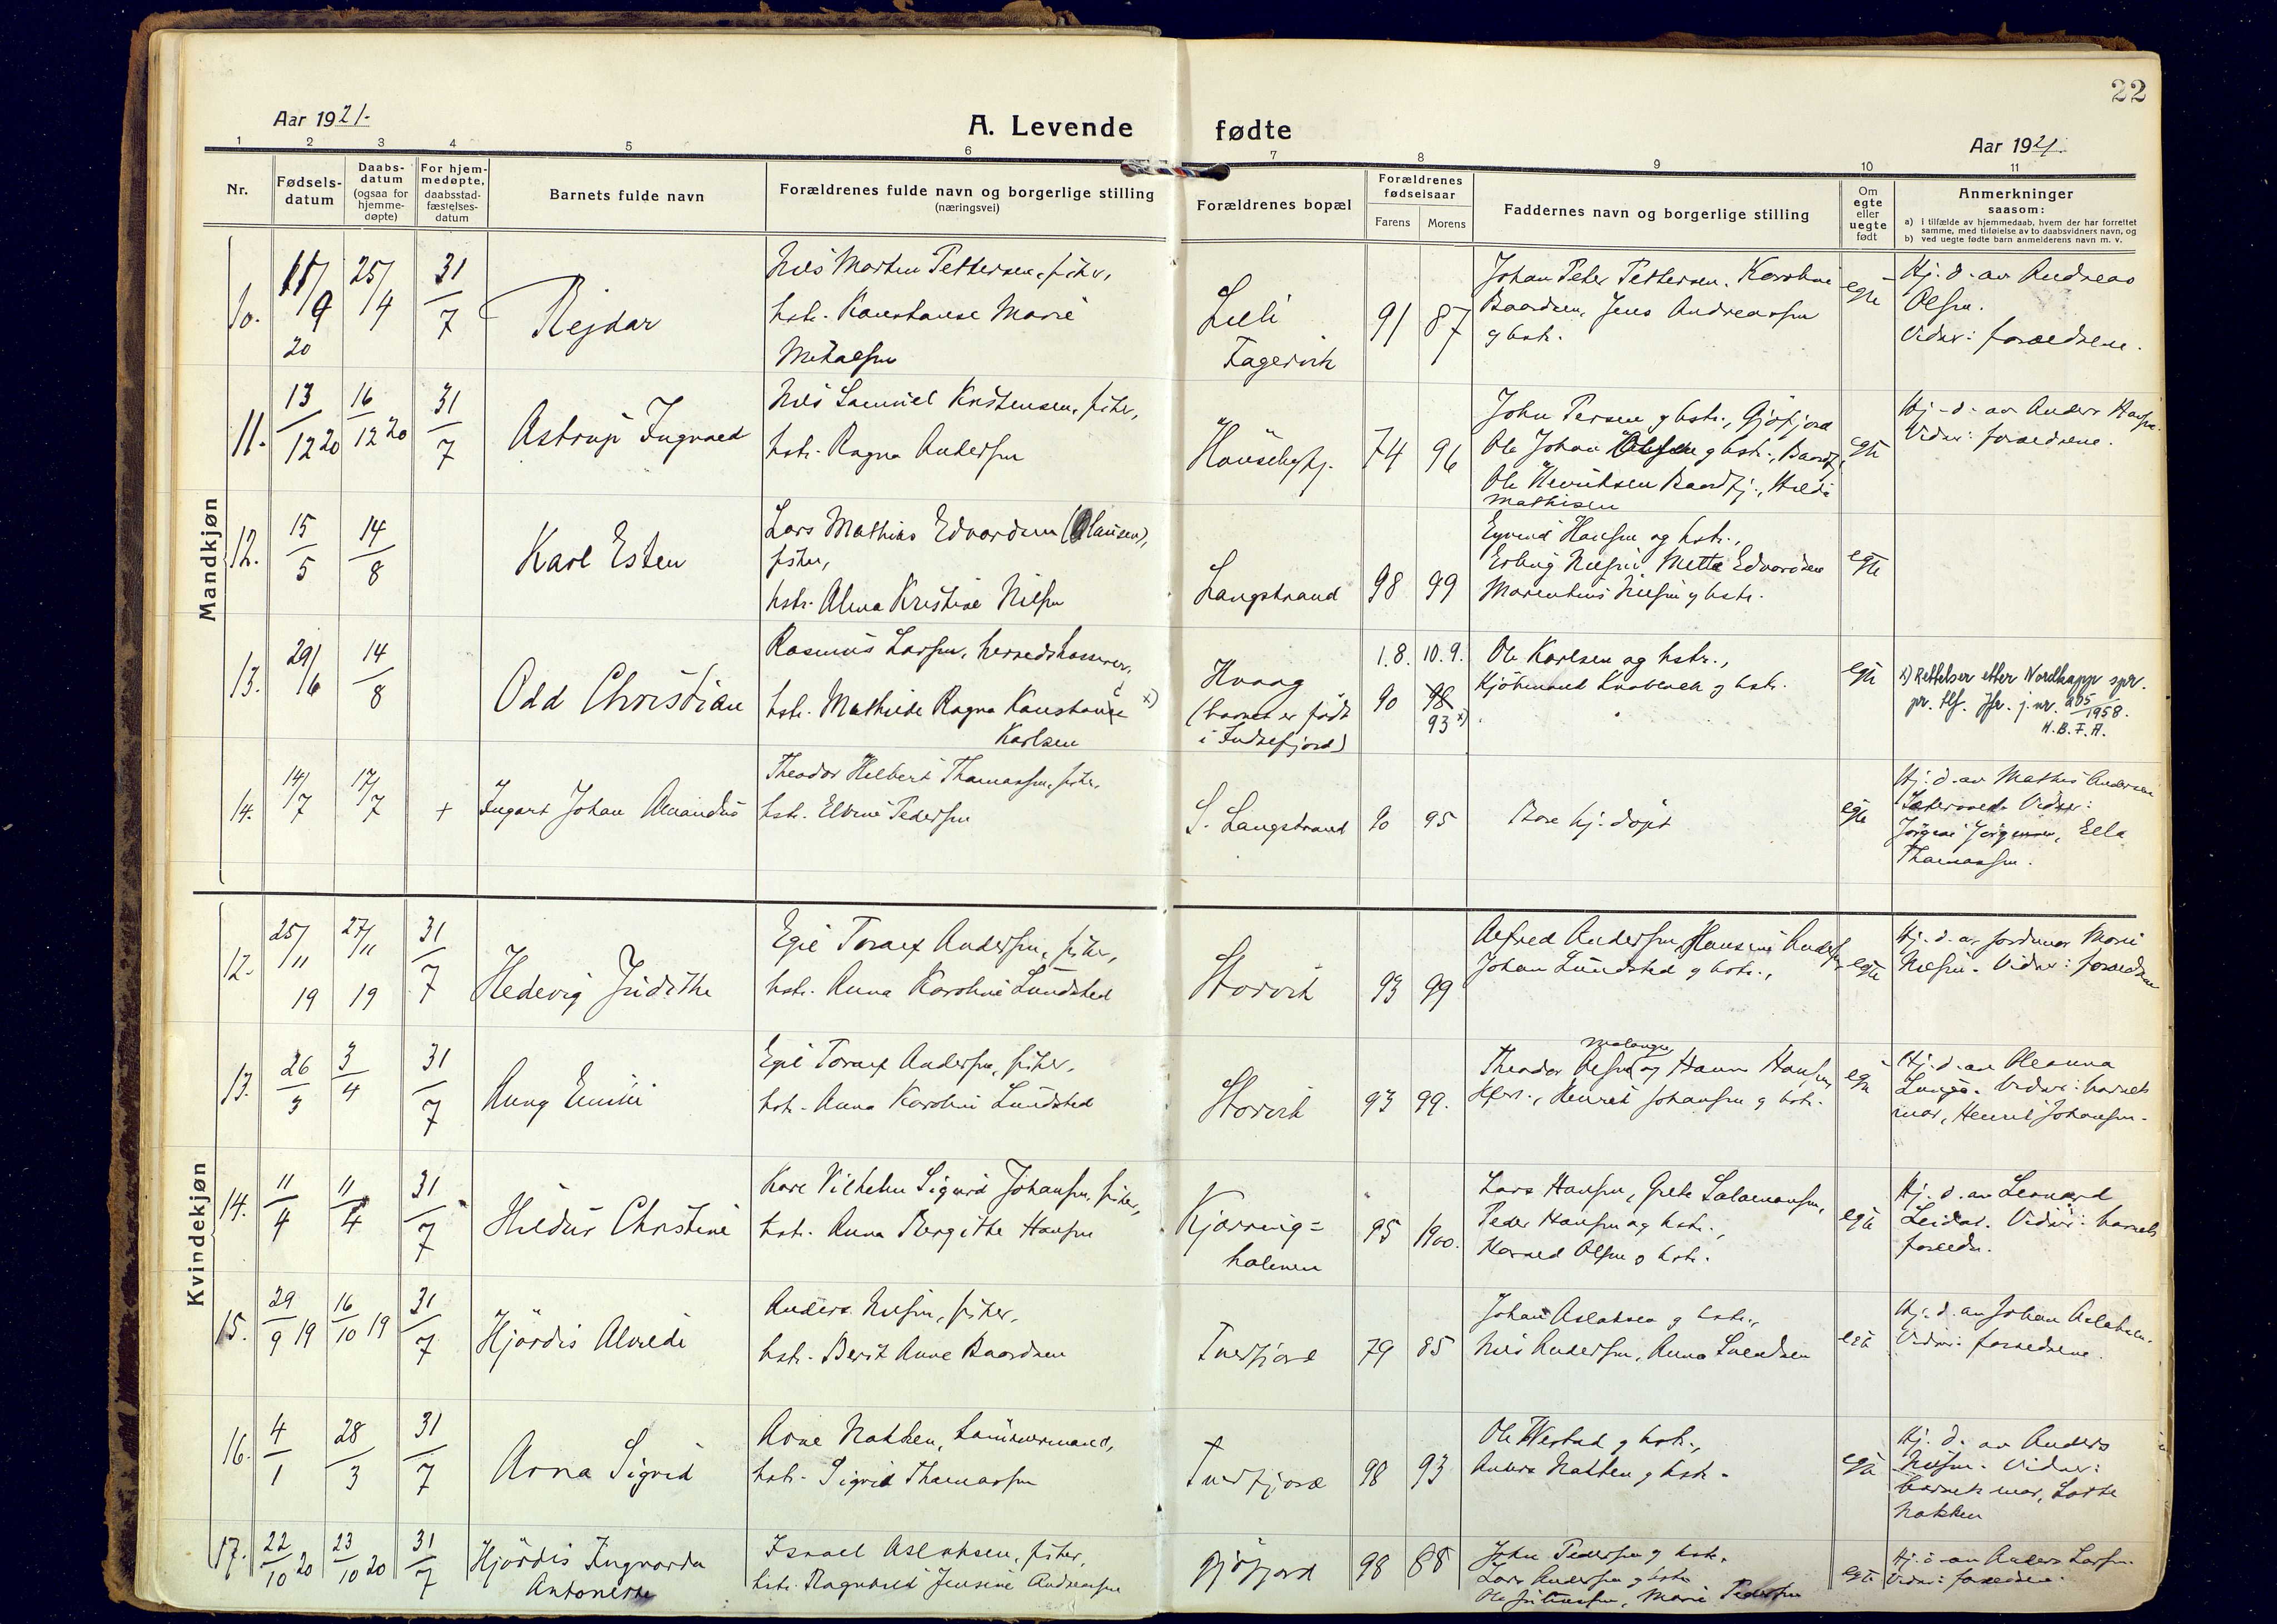 22
Aar 1921.
A. Levende fødte
Aar 1921.
1 2 3 4 5 6 7 8 9 10 11
Nr.
Fødsels-
datum
Daabs-
datum
(ogsaa for
hjemme-
døpte)
For hjem-
medøpte,
daabsstad-
fæstelses-
datum
Barnets fulde navn
Forældrenes fulde navn og borgerlige stilling
(næringsvei)
Forældrenes bopæl
Forældrenes
fødselsaar
Farens Morens
Faddernes navn og borgerlige stilling
Om
egte
eller
uegte
født
Anmerkninger
saasom:
a) i tilfælde av hjemmedaab, hvem der har forrettet
samme, med tilføielse av to daabsvidners navn, og
b) ved uegte fødte barn anmelderens navn m. v.
Mandkjøn
10. 11/9 20 25/4 31/7 Rejdar
Nils Morten Pettersen, fisker,
hstr. Konstanse Marie
Lille
Fagervik
91 87
Johan Peter Pettersen, Karoline
Baardsen, Jens Andreassen
og hstr.
egte
Hj. d. av Andreas
Olsen.
Vidner: forældrene.
11. 13/12 20 16/12 20 31/7 Astrup Ingvald
Nils Samuel Kristensen, fisker,
hstr. Ragna Andersen
74 96
John Persen og hstr., Gjøfjord
Ole Johan Olsen og hstr., Baardfj.
Ole Henriksen Baardfj., Hilda
Mathisen
egte
Hj. d. av Anders Hansen.
Vidner: forældrene.
12. 15/5 14/8 Karl Esten
Lars Mathias Edvardsen (Clausen),
fisker,
hstr. Alma Kristine Nilsen
Langstrand
98 99
Eyvind Hansen og hstr.,
Erling Nilsen, Mette Edvardsen
Marentius Nilsen og hstr.
egte
13. 29/6 14/8 Odd Christian
Rasmus Larsen, herredskasserer,
hstr. Mathilde Ragna Konstanse x)
Karlsen
Hvaag
(barnet er født
i Indrefjord)
1.8. 10.9.
90 98
93 x)
Ole Karlsen og hstr.,
egte
x) Rettelser etter Nordkapp spr.
pr. tlf. Jfr. j. nr. 205/1958.
H.B.F.A.
14. 14/7 17/7 + Ingart Johan Amandus
Theodor Hilbert Thomassen, fisker,
hstr. Elvine Pedersen
S. Langstrand
90 95
Bare hj. døpt
egte
Hj. d. av Mathis Andersen
Vidner:
Jørgine Jørgensen, Ella
Thomassen.
Kvindekjøn
12. 25/11 19 27/11 19 31/7 Hedevig Judithe
Egil Toralf Andersen, fisker,
hstr. Anna Karoline Lundsted
Storvik
93 99
Alfred Andersen, Hansine Andersen
Johan Lundsted og hstr.,
egte
Hj. d. av jordmor Marie
Nilsen. Vidner: forældrene
13. 26/3 3/4 31/7 Aung Emilie
Egil Toralf Andersen, fisker,
hstr. Anna Karoline Lundsted
Storvik
93 99.
Malangen
Theodor Olsen og Hanna Hansen
Hfest., Henrik Johansen og hstr.
egte
Hj. d. av Oleanna
Vidner: barnets
mor, Henrik Johansen.
14. 11/4 11/4 31/7 Hildur Christine
Karl Vilhelm Sigurd Johansen, fisker,
hstr. Anna Bergithe Hansen
Kjerring=
holmen
95 1900.
Lars Hansen, Grete Salamonsen,
Peder Hansen og hstr.,
Harald Olsen og hstr.
egte
Hj. d. av Leonard
Vidner: barnets
forældre.
15. 29/9 19 16/10 19 31/7 Hjørdis Alvilde
Anders Nilsen, fisker,
hstr. Berit Anne Baardsen
Tuefjord
79 85
Johan Aslaksen og hstr.,
Nils Andersen, Anna Svendsen
egte
Hj. d. av Johan Aslaksen.
Vidner: forældrene.
16. 4/1 28/3 31/7 Arna Sigrid
Arne Nakken, tømmermand,
hstr. Sigrid Thomassen
Tuefjord
98 93
Ole Westad og hstr.,
Anders Nakken og hstr.
egte
Hj. d. av Anders
Nilsen. Vidner:
barnets mor, Lotte
Nakken
17. 22/10 20 23/10 20 31/7 Hjørdis Ingvarda
Antonette
Israel Aslaksen, fisker,
hstr. Ragnhild Jensine Andreassen
Gjøfjord
98 88
John Pedersen og hstr.
Lars Andersen og hstr.
Ole Justnæssen, Marie Pedersen
egte
Hj. d. av Anders Larsen.
Vidner: forældrene.